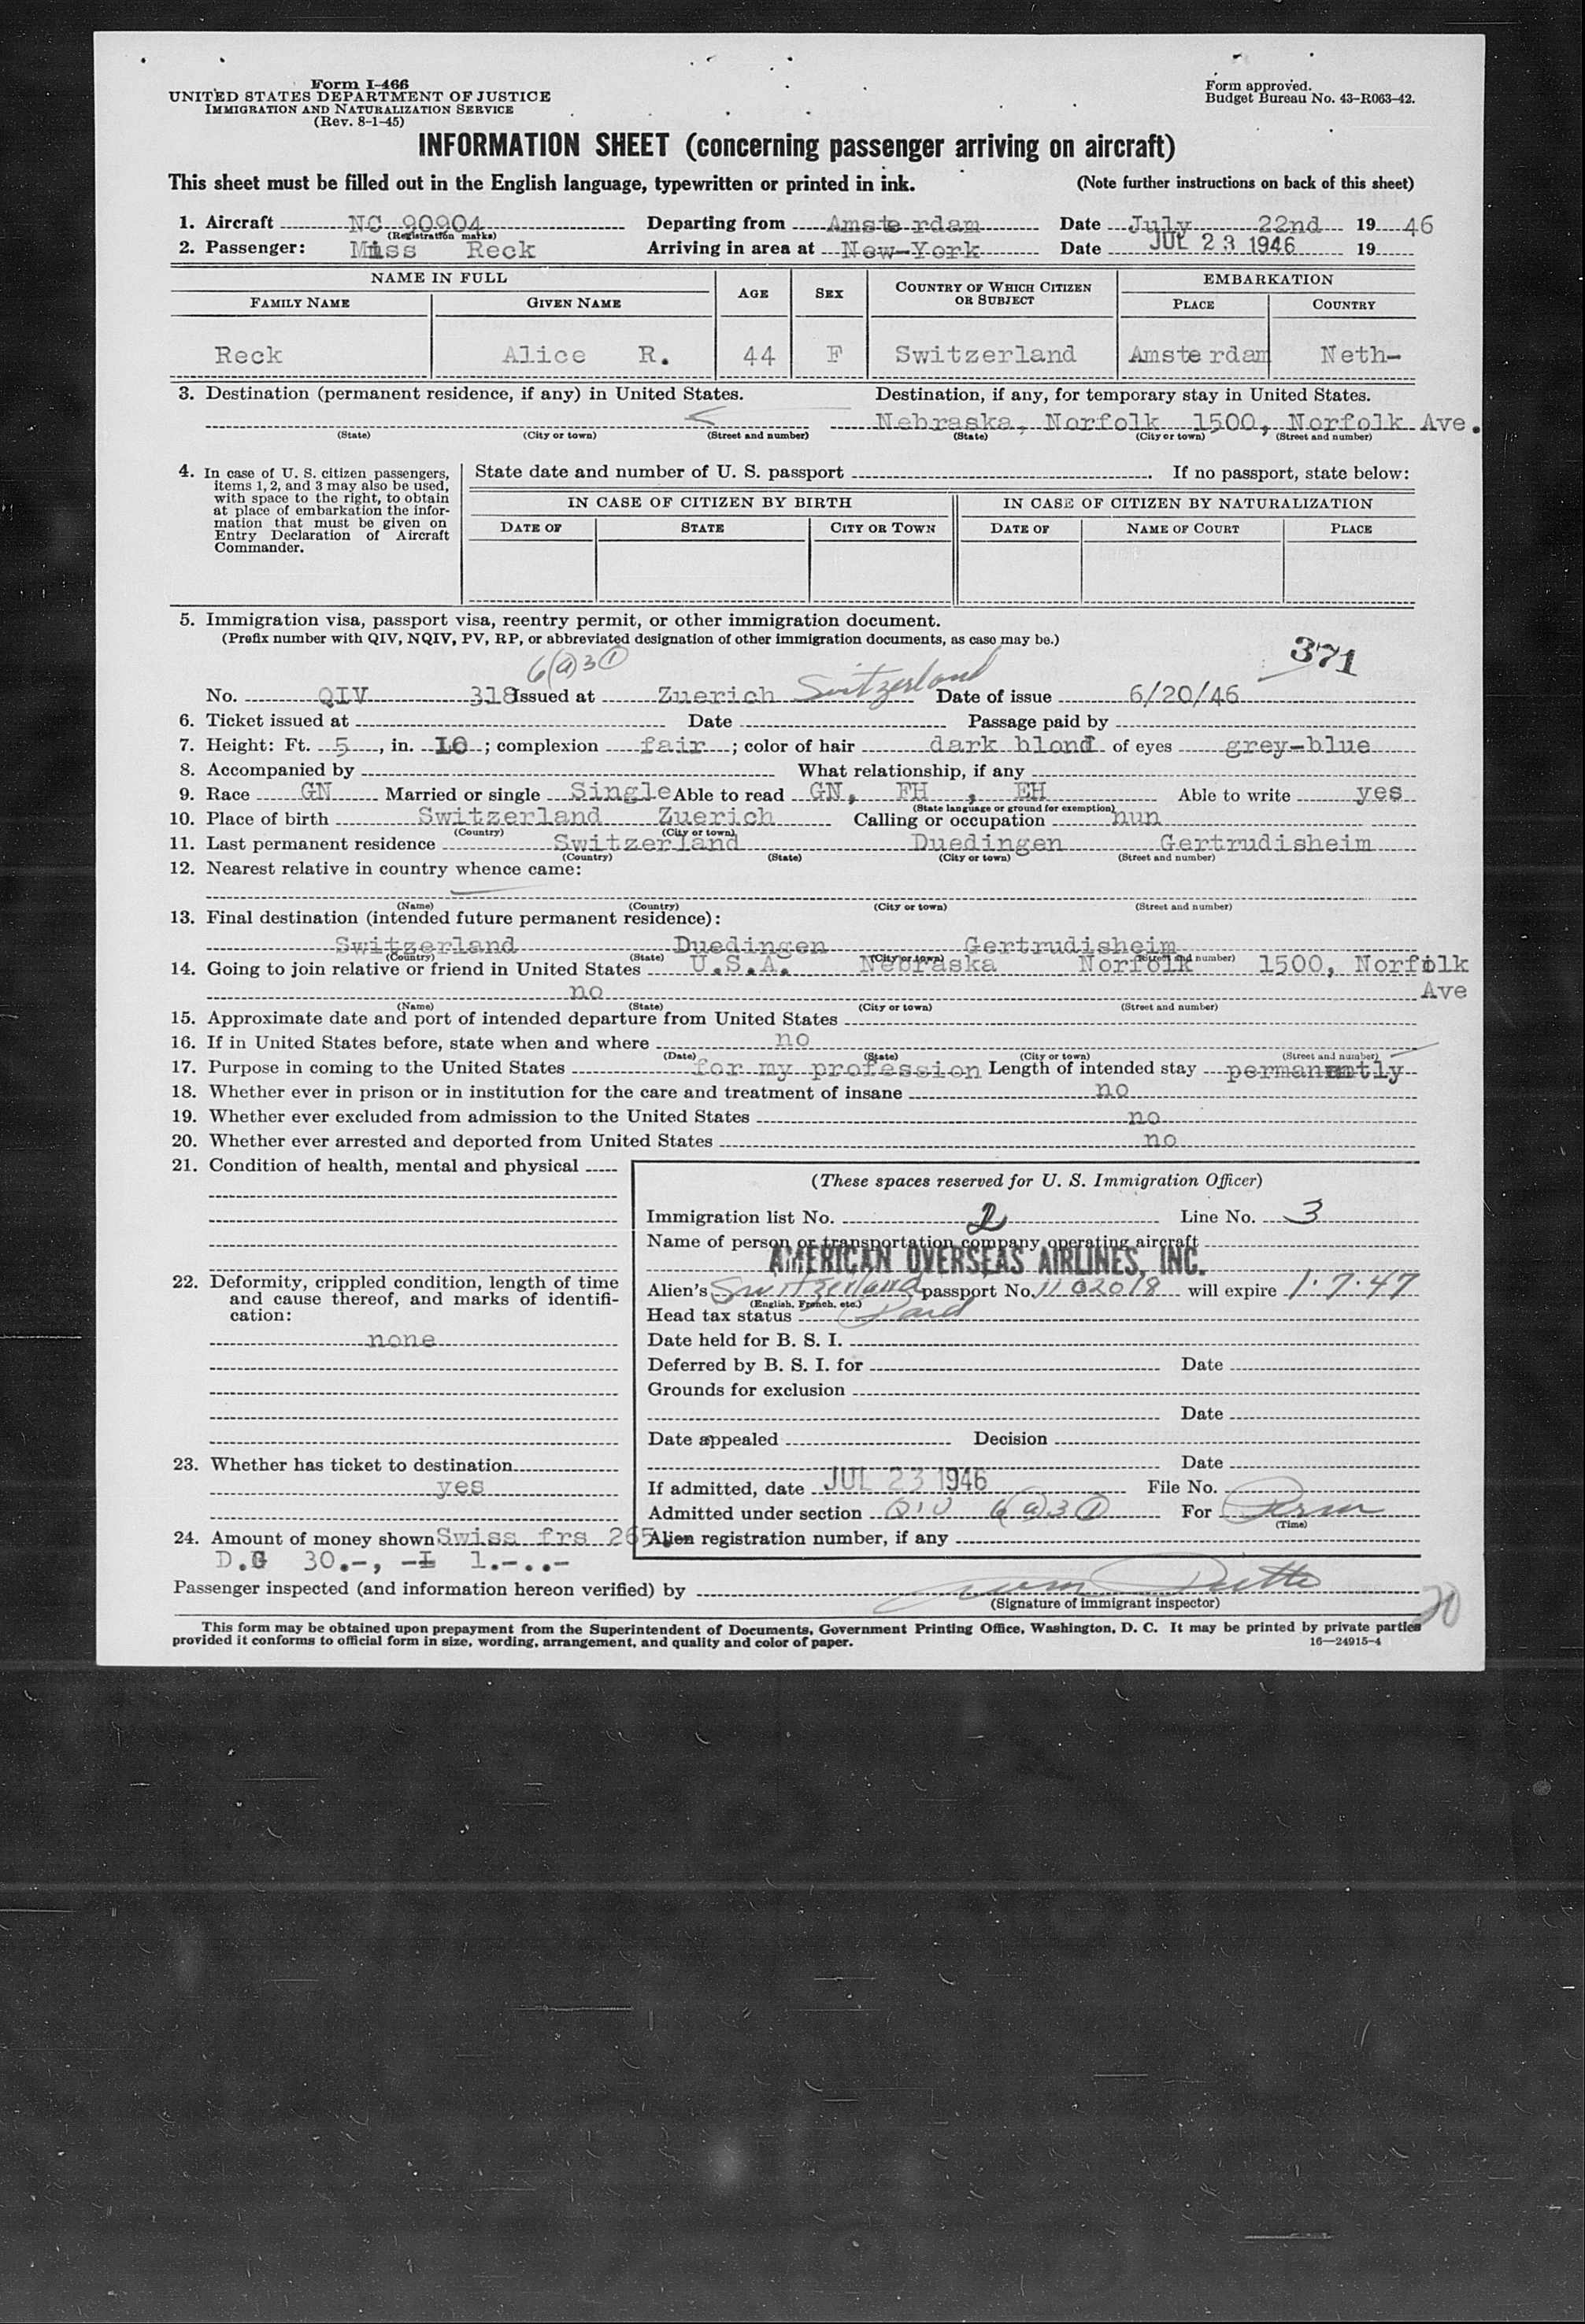 Form I-466
UNITED STATES DEPARTMENT OF JUSTICE
IMMIGRATION AND NATURALIZATION SERVICE
(Rev. 8-1-45)
Form approved.
Budget Bureau No. 43-R063-42.
INFORMATION SHEET (concerning passenger arriving on aircraft)
This sheet must be filled out in the English language, typewritten or printed in ink. (Note further instructions on back of this sheet)
1. Aircraft NC 90904 Departing from Amste rdam Date July 22nd 19 46
(Registration marks)
2. Passenger: Miss Reck Arriving in area at New-York Date JUL 23 1946 19
NAME IN FULL AGE SEX COUNTRY OF WHICH CITIZEN OR SUBJECT EMBARKATION
FAMILY NAME GIVEN NAME PLACE COUNTRY
Reck Alice R. 44 F Switzerland Amste rdam Neth-
3. Destination (permanent residence, if any) in United States. Destination, if any, for temporary stay in United States.
Nebraska, Norfolk 1500, Norfolk Ave.
(State) (City or town) (Street and number) (State) (City or town) (Street and number)
4. In case of U. S. citizen passengers, items 1, 2, and 3 may also be used, with space to the right, to obtain at place of embarkation the information that must be given on Entry Declaration of Aircraft Commander.
State date and number of U. S. passport . If no passport, state below:
IN CASE OF CITIZEN BY BIRTH IN CASE OF CITIZEN BY NATURALIZATION
DATE OF STATE CITY OR TOWN DATE OF NAME OF COURT PLACE
5. Immigration visa, passport visa, reentry permit, or other immigration document.
(Prefix number with QIV, NQIV, PV, RP, or abbreviated designation of other immigration documents, as case may be.)
6(a)3(1) 371
No. QIV 318 Issued at Zuerich Switzerland Date of issue 6/20/46
6. Ticket issued at Date Passage paid by
7. Height: Ft. 5, in. 10; complexion fair; color of hair dark blond of eyes grey-blue
8. Accompanied by What relationship, if any
9. Race GN Married or single Single Able to read GN, FH , EH Able to write yes
(State language or ground for exemption)
10. Place of birth Switzerland Zuerich Calling or occupation nun
(Country) (City or town)
11. Last permanent residence Switzerland Duedingen Gertrudisheim
(Country) (State) (City or town) (Street and number)
12. Nearest relative in country whence came:
(Name) (Country) (City or town) (Street and number)
13. Final destination (intended future permanent residence):
Switzerland Duedingen Gertrudisheim
(Country) (State) (City or town) (Street and number)
14. Going to join relative or friend in United States U.S.A. Nebraska Norfolk 1500, Norfolk
no Ave
(Name) (State) (City or town) (Street and number)
15. Approximate date and port of intended departure from United States
16. If in United States before, state when and where no
(Date) (State) (City or town) (Street and number)
17. Purpose in coming to the United States for my profession Length of intended stay permanently
18. Whether ever in prison or in institution for the care and treatment of insane no
19. Whether ever excluded from admission to the United States no
20. Whether ever arrested and deported from United States no
21. Condition of health, mental and physical
22. Deformity, crippled condition, length of time and cause thereof, and marks of identification:
none
23. Whether has ticket to destination
yes
(These spaces reserved for U. S. Immigration Officer)
Immigration list No. 2 Line No. 3
Name of person or transportation company operating aircraft
AMERICAN OVERSEAS AIRLINES, INC.
Alien's Switzerland passport No. 1102018 will expire 1-7-47
(English, French, etc.)
Head tax status Paid
Date held for B. S. I.
Deferred by B. S. I. for Date
Grounds for exclusion
Date
Date appealed Decision
Date
If admitted, date JUL 23 1946 File No.
Admitted under section QIV 6(a)3(1) For Perm
(Time)
Alien registration number, if any
24. Amount of money shown Swiss frs 265.
D.G 30.-, 1.-..-
Passenger inspected (and information hereon verified) by
(Signature of immigrant inspector)
20
This form may be obtained upon prepayment from the Superintendent of Documents, Government Printing Office, Washington, D. C. It may be printed by private parties
provided it conforms to official form in size, wording, arrangement, and quality and color of paper. 16—24915-4